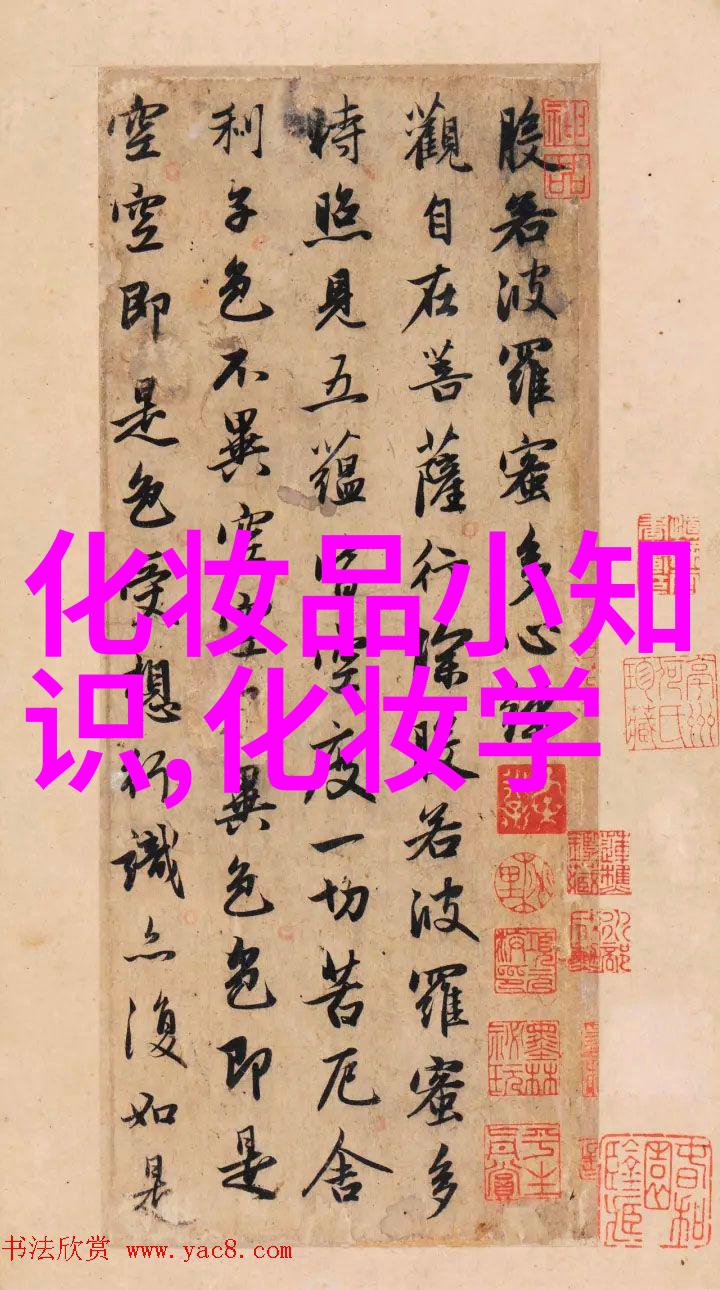 般若波羅蜜多心經
觀自在菩薩行深般若波羅蜜多
時照見五蘊皆空度一切苦厄舍
利子色不異空空不異色色即是
空空即是色受想行識亦復如是
化妆品小知
识,化妆学
神品
墨林秘玩
书法欣赏 www.yac8.com